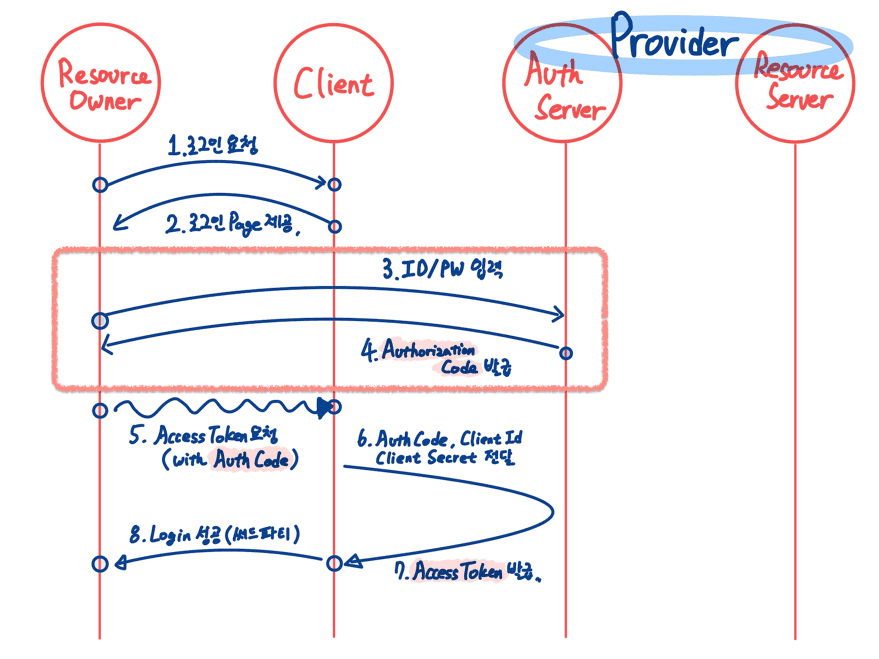 Provider
Resource
Owner
Client
Auth
Server
Resource
Server
1.로그인 요청
2.로그인 Page 제공.
3.ID/PW 입력
4.Authorization
Code 발급
5. Access Token 요청
(with Auth Code)
6.Auth Code, Client Id
Client Secret 전달
7.Access Token 발급.
8.Login 성공(써드파티)